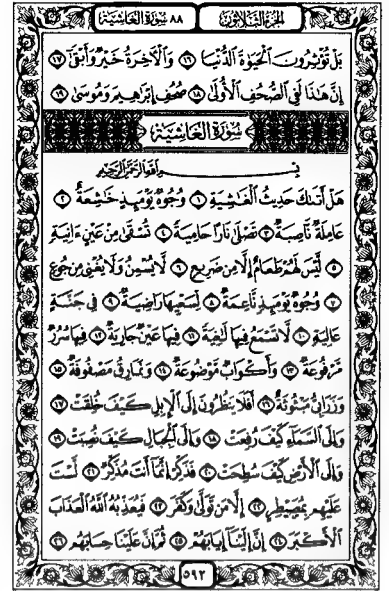 الجزء الثلاثون ٨٨ سورة الغاشية
بَلْ تُؤْثِرُونَ الْحَيَوٰةَ الدُّنْيَا ۝١٦ وَالْآخِرَةُ خَيْرٌ وَأَبْقَىٰ ۝١٧
إِنَّ هَٰذَا لَفِي الصُّحُفِ الْأُولَىٰ ۝١٨ صُحُفِ إِبْرَاهِيمَ وَمُوسَىٰ ۝١٩
سُورَةُ الغَاشِيَةِ
بِسْمِ اللَّهِ الرَّحْمَٰنِ الرَّحِيمِ
هَلْ أَتَىٰكَ حَدِيثُ الْغَٰشِيَةِ ۝١ وُجُوهٌ يَوْمَئِذٍ خَٰشِعَةٌ ۝٢
عَامِلَةٌ نَّاصِبَةٌ ۝٣ تَصْلَىٰ نَارًا حَامِيَةً ۝٤ تُسْقَىٰ مِنْ عَيْنٍ ءَانِيَةٍ
۝٥ لَّيْسَ لَهُمْ طَعَامٌ إِلَّا مِن ضَرِيعٍ ۝٦ لَّا يُسْمِنُ وَلَا يُغْنِي مِن جُوعٍ
۝٧ وُجُوهٌ يَوْمَئِذٍ نَّاعِمَةٌ ۝٨ لِّسَعْيِهَا رَاضِيَةٌ ۝٩ فِي جَنَّةٍ
عَالِيَةٍ ۝١٠ لَّا تَسْمَعُ فِيهَا لَٰغِيَةً ۝١١ فِيهَا عَيْنٌ جَارِيَةٌ ۝١٢ فِيهَا سُرُرٌ
مَّرْفُوعَةٌ ۝١٣ وَأَكْوَابٌ مَّوْضُوعَةٌ ۝١٤ وَنَمَارِقُ مَصْفُوفَةٌ ۝١٥
وَزَرَابِيُّ مَبْثُوثَةٌ ۝١٦ أَفَلَا يَنظُرُونَ إِلَى الْإِبِلِ كَيْفَ خُلِقَتْ ۝١٧
وَإِلَى السَّمَاءِ كَيْفَ رُفِعَتْ ۝١٨ وَإِلَى الْجِبَالِ كَيْفَ نُصِبَتْ ۝١٩
وَإِلَى الْأَرْضِ كَيْفَ سُطِحَتْ ۝٢٠ فَذَكِّرْ إِنَّمَا أَنتَ مُذَكِّرٌ ۝٢١ لَّسْتَ
عَلَيْهِم بِمُصَيْطِرٍ ۝٢٢ إِلَّا مَن تَوَلَّىٰ وَكَفَرَ ۝٢٣ فَيُعَذِّبُهُ اللَّهُ الْعَذَابَ
الْأَكْبَرَ ۝٢٤ إِنَّ إِلَيْنَا إِيَابَهُمْ ۝٢٥ ثُمَّ إِنَّ عَلَيْنَا حِسَابَهُم ۝٢٦
٥٩٢